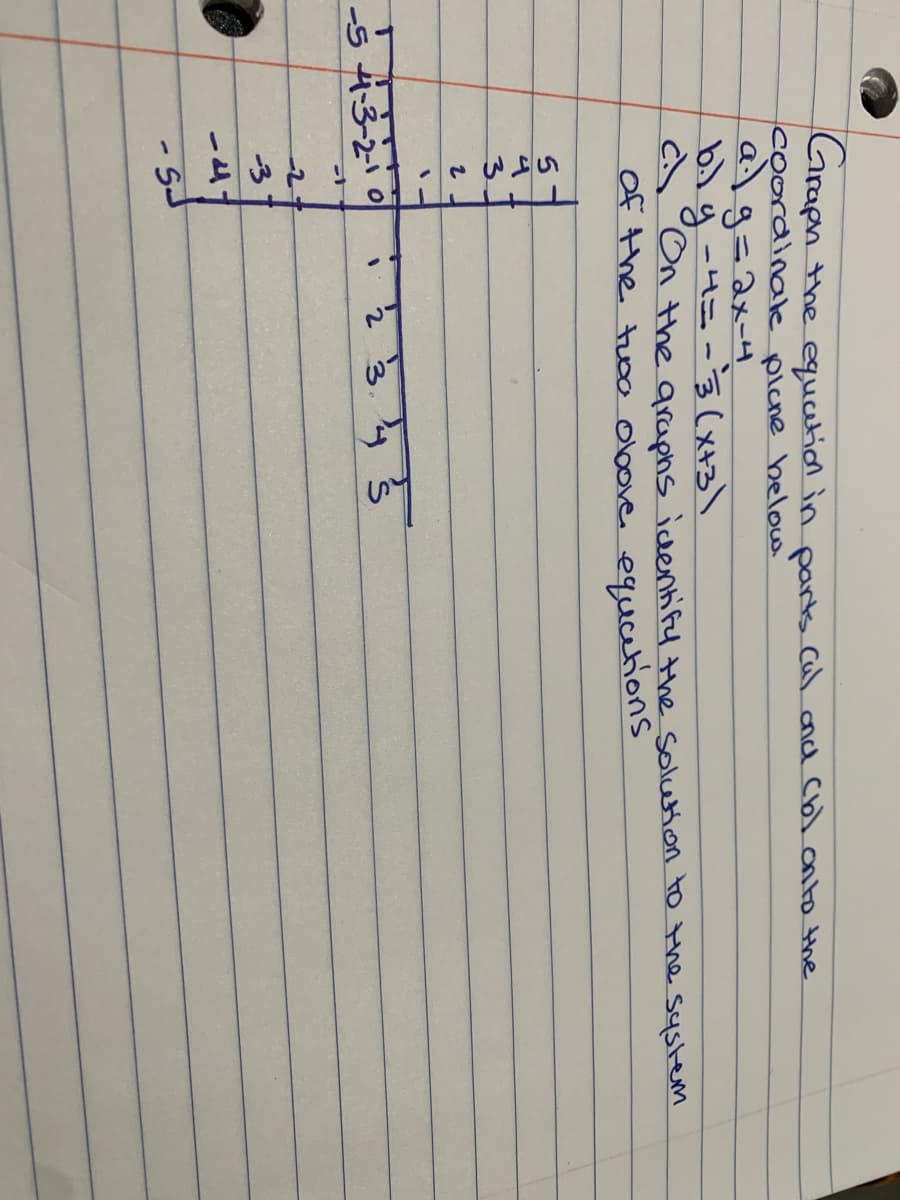 Graph the equation in parts (a) and (b) onto the
coordinate plane below.
a.) y = 2x-4
b.) y -4 = -⅓ (x+3)
c.) On the graphs identify the solution to the system
of the two above equations
5
4
3
2
1
-5 -4 -3 -2 -1 0 1 2 3 4 5
-1
-2
-3
-4
-5